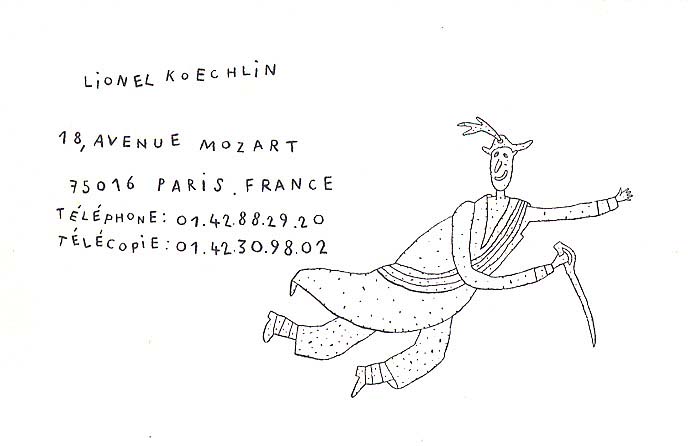 LiONEL KOECHLiN
18, AVENUE MOZART
75016 PARIS. FRANCE
TÉLÉPHONE: 01.42.88.29.20
TÉLÉCOPiE: 01.42.30.98.02